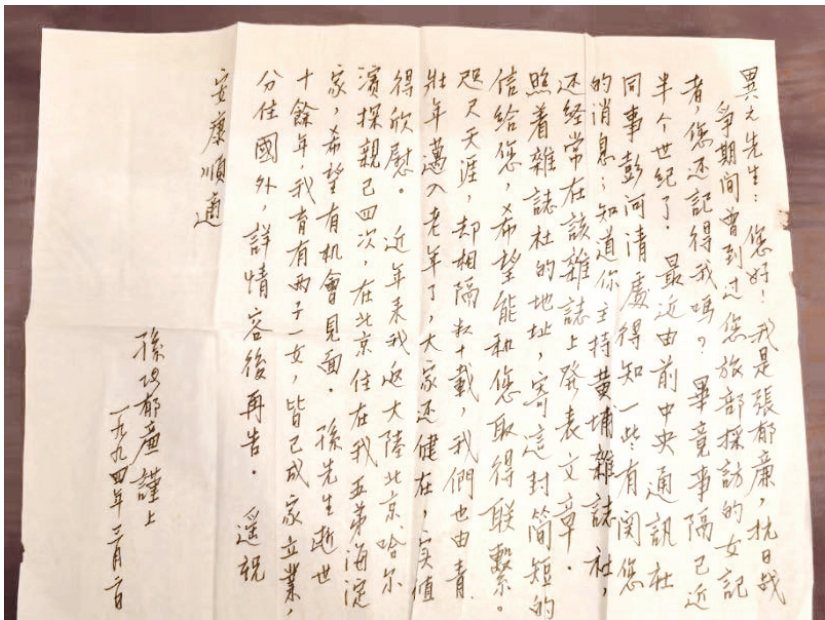 異之先生：您好！我是張郁廉，抗日战
爭期間曾到过您旅部採訪的女記
者，您还記得我嗎？畢竟事隔已近
半个世紀了．最近由前中央通訊社
同事彭河清處得知一些有関您
的消息；知道你主持黄埔雜誌社，
还経常在該雜誌上発表文章．
照着雜誌社的地址，寄這封简短的
信給您，希望能和您取得联繫。
咫尺天涯，却相隔数十載，我們也由青
壯年邁入老年了，大家还健在，实值
得欣慰． 近年来我返大陸北京、哈尔
濱探親已四次，在北京住在我五弟海淀
家，希望有机會見面． 孫先生逝世
十餘年，我育有兩子一女，皆已成家立業，
分住國外，詳情容後再告． 遥祝
安康順適
孫張郁廉 謹上
一九九四年 三月 二日